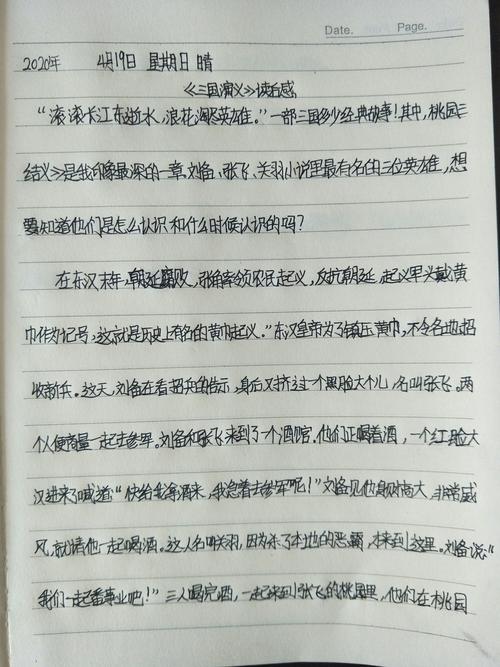 Date. Page.
2020年 4月19日 星期日 晴
《三国演义》读后感
“滚滚长江东逝水，浪花淘尽英雄。”一部三国多少经典故事！其中，桃园三
结义》是我印象最深的一章。刘备、张飞、关羽小说里最有名的三位英雄，想
要知道他们是怎么认识和什么时候认识的吗？
在东汉末年，朝廷腐败，张角率领农民起义，反抗朝廷，起义军头戴黄
巾作为记号，这就是历史上有名的黄巾起义。”东汉皇帝为了镇压黄巾，下令各地招
收新兵。这天，刘备在看招兵的告示，身后又挤过一个黑脸大个儿，名叫张飞。两
个人便商量一起去参军。刘备和张飞来到了个酒馆。他们正喝着酒，一个红脸大
汉进来了喊道“快给我拿酒来，我急着去参军呢！”刘备见他身材高大，非常威
风，就请他一起喝酒。这人名叫关羽，因为杀了本地的恶霸，才来到这里。刘备说：“
我们一起番事业吧！”三人喝完酒，一起来到张飞的桃园里，他们在桃园